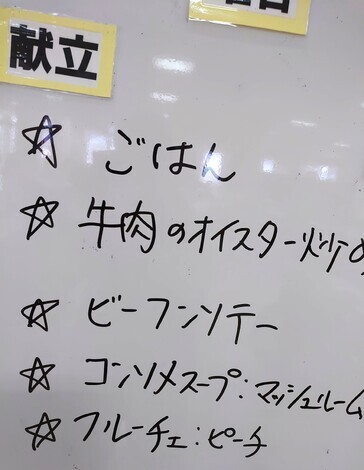 献立
☆ ごはん
☆ 牛肉のオイスター炒め
☆ ビーフンソテー
☆ コンソメスープ:マッシュルーム
☆ フルーチェ:ピーチ